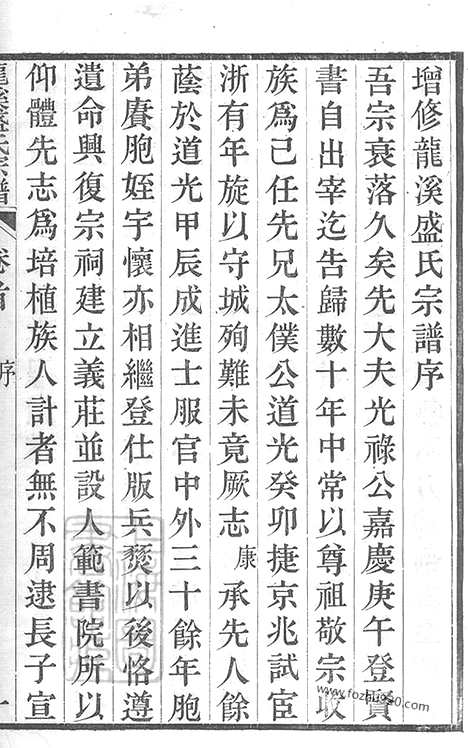 增修龍溪盛氏宗譜序
吾宗衰落久矣先大夫光祿公嘉慶庚午登賢
書自出宰迄告歸數十年中常以尊祖敬宗收
族爲己任先兄太僕公道光癸卯捷京兆試宦
浙有年旋以守城殉難未竟厥志康承先人餘
蔭於道光甲辰成進士服官中外三十餘年胞
弟賡胞姪宇懷亦相繼登仕版兵燹以後恪遵
遺命興復宗祠建立義莊並設人範書院所以
仰體先志爲培植族人計者無不周逮長子宣
龍溪盛氏宗譜 卷首 序 一
www.fozhu920.com